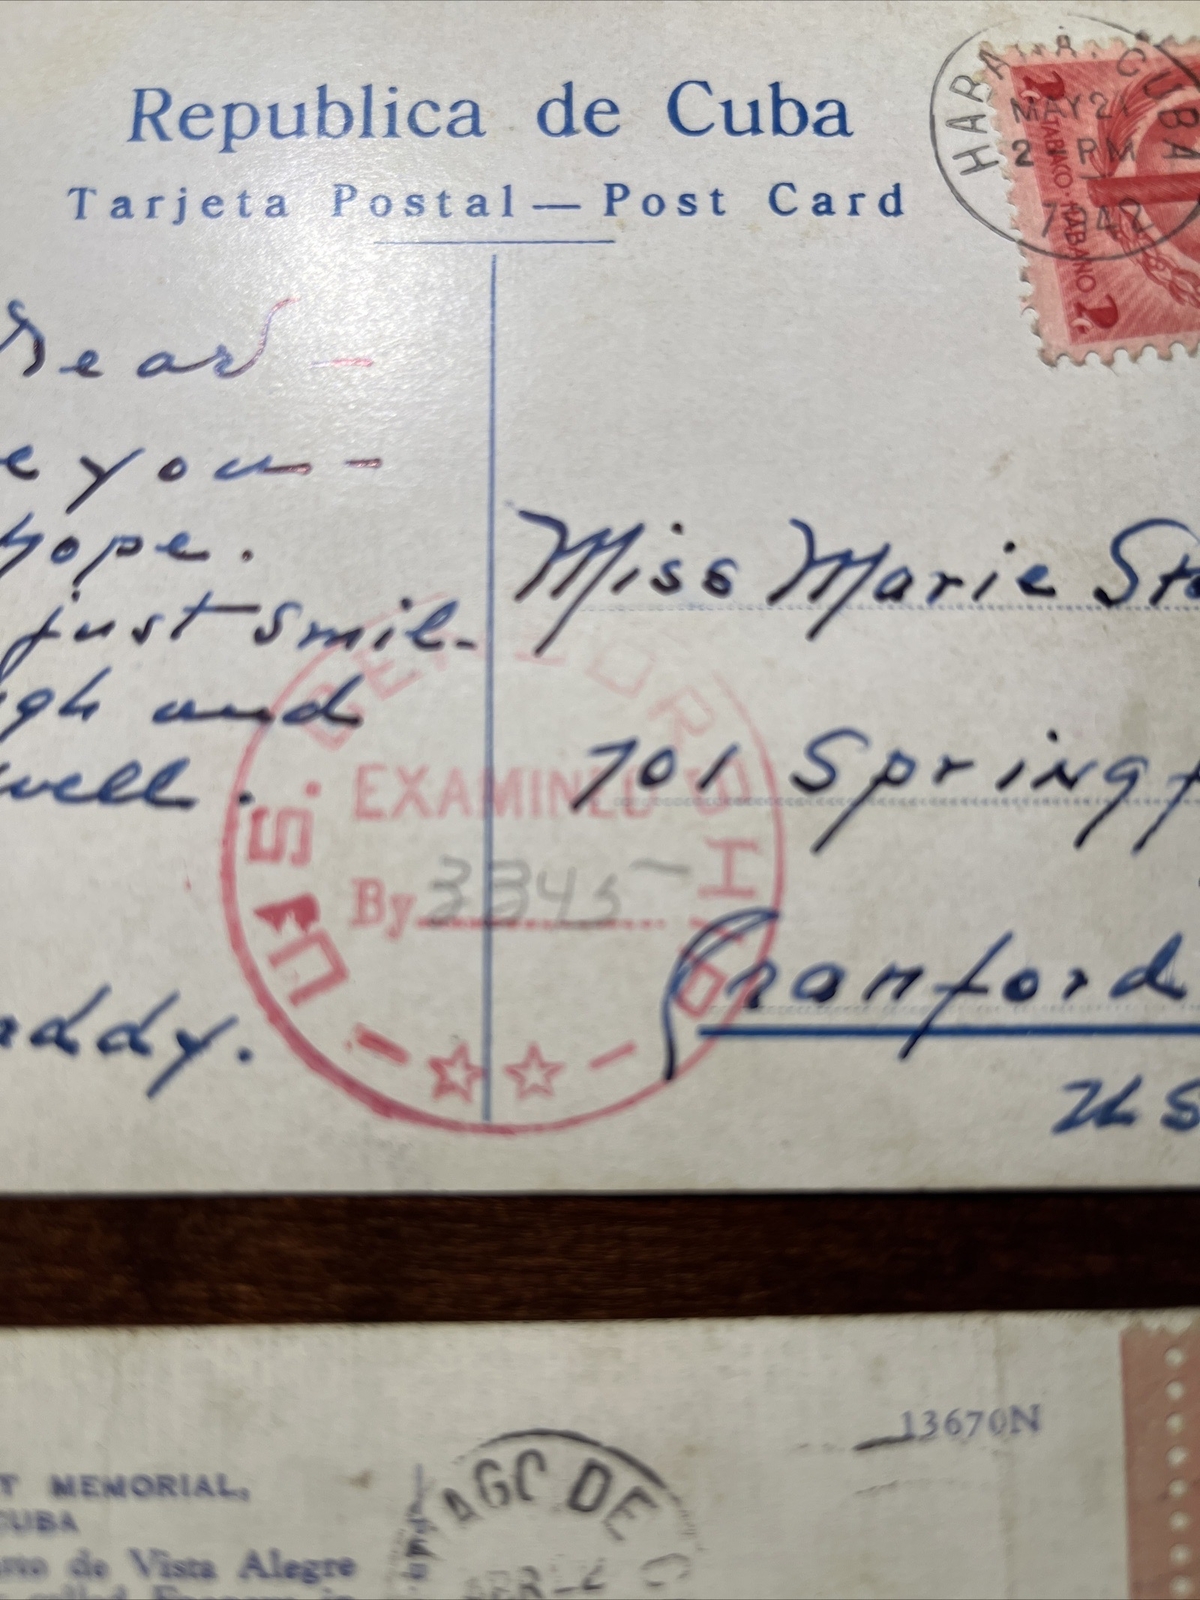 Republica de Cuba
Tarjeta Postal — Post Card
HABANA. CUBA
MAY 21
2 PM
1942
TABACO HABANO
2c
2c
Dear –
you –
hope.
just smil-
and
well.
Daddy.
Miss Marie
701 Springf
Cranford
US
U.S. CENSORSHIP
EXAMINED
By 3345
13670N
MEMORIAL,
CUBA
de Vista Alegre
AGO DE C
APR